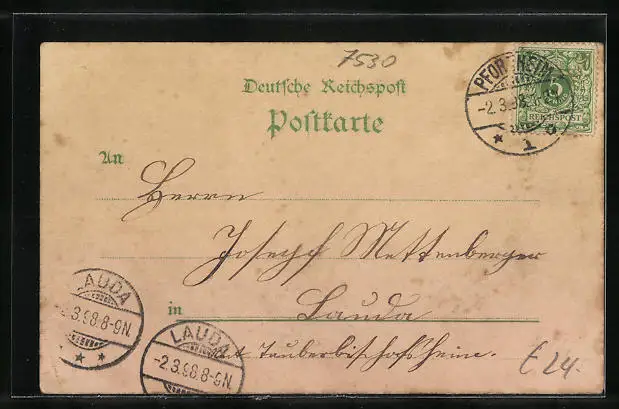 7530
Deutsche Reichspost
Postkarte
PFORZHEIM
-2.3.98.
1
5
REICHSPOST
An
Herrn
Joseph Mettenberger
in Lauda
Amt Tauberbischofsheim.
LAUDA
-2.3.98.8-9N.
LAUDA
-2.3.98.8-9N.
£24.-